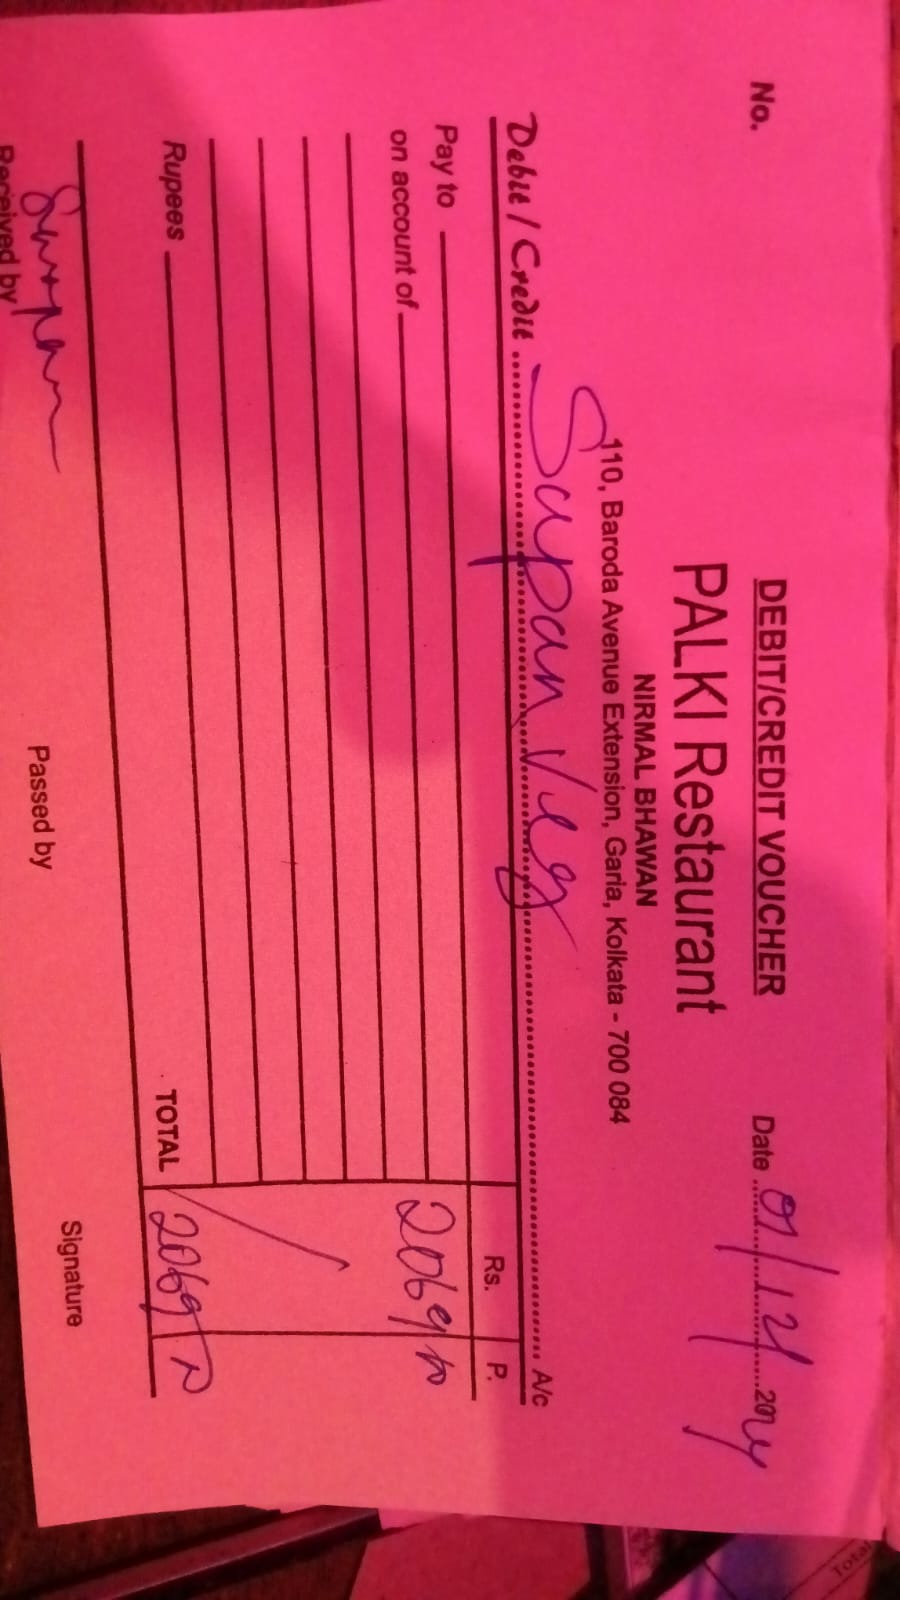 DEBIT/CREDIT VOUCHER
No. Date 01/12/2024
PALKI Restaurant
NIRMAL BHAWAN
110, Baroda Avenue Extension, Garia, Kolkata - 700 084
Debit / Credit Sapan Veg A/c
Rs. P.
Pay to 2069
on account of
Rupees TOTAL 2069
Swapan
Received by Passed by Signature
Total